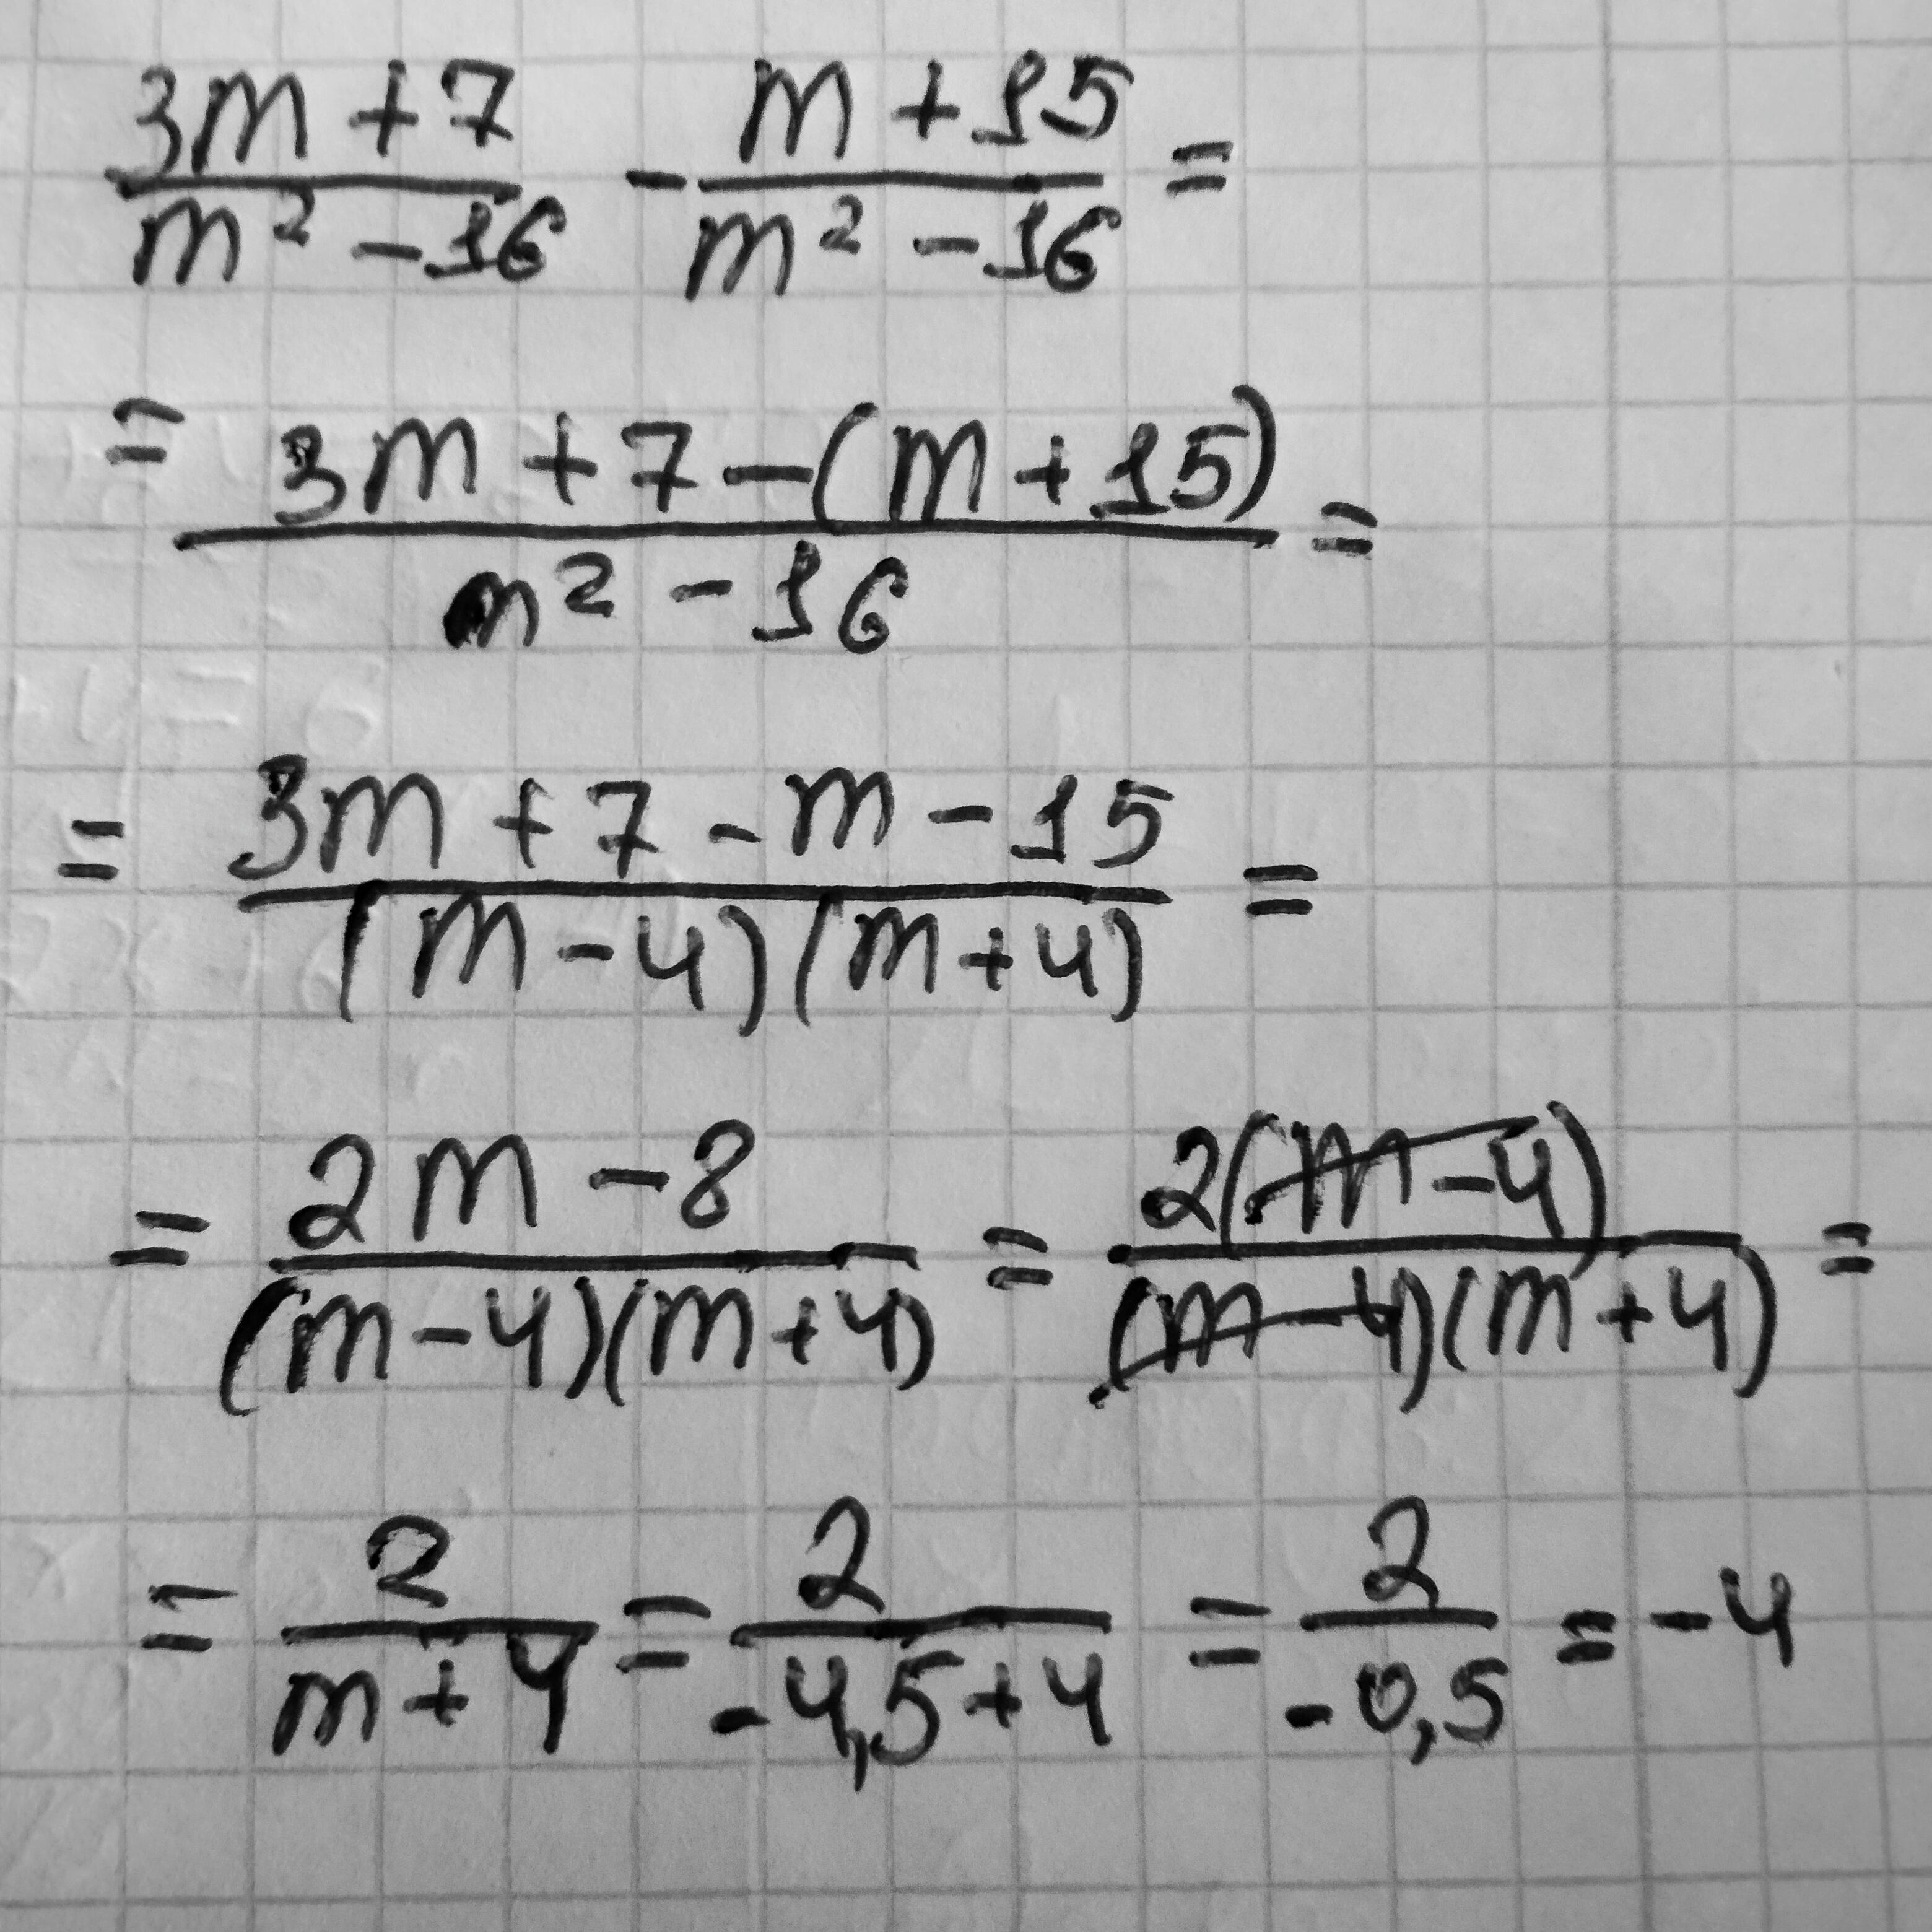 (3m + 7)/(m² - 16) - (m + 15)/(m² - 16) =
= (3m + 7 - (m + 15))/(m² - 16) =
= (3m + 7 - m - 15)/((m - 4)(m + 4)) =
= (2m - 8)/((m - 4)(m + 4)) = (2(m - 4))/((m - 4)(m + 4)) =
= 2/(m + 4) = 2/(-4,5 + 4) = 2/(-0,5) = -4